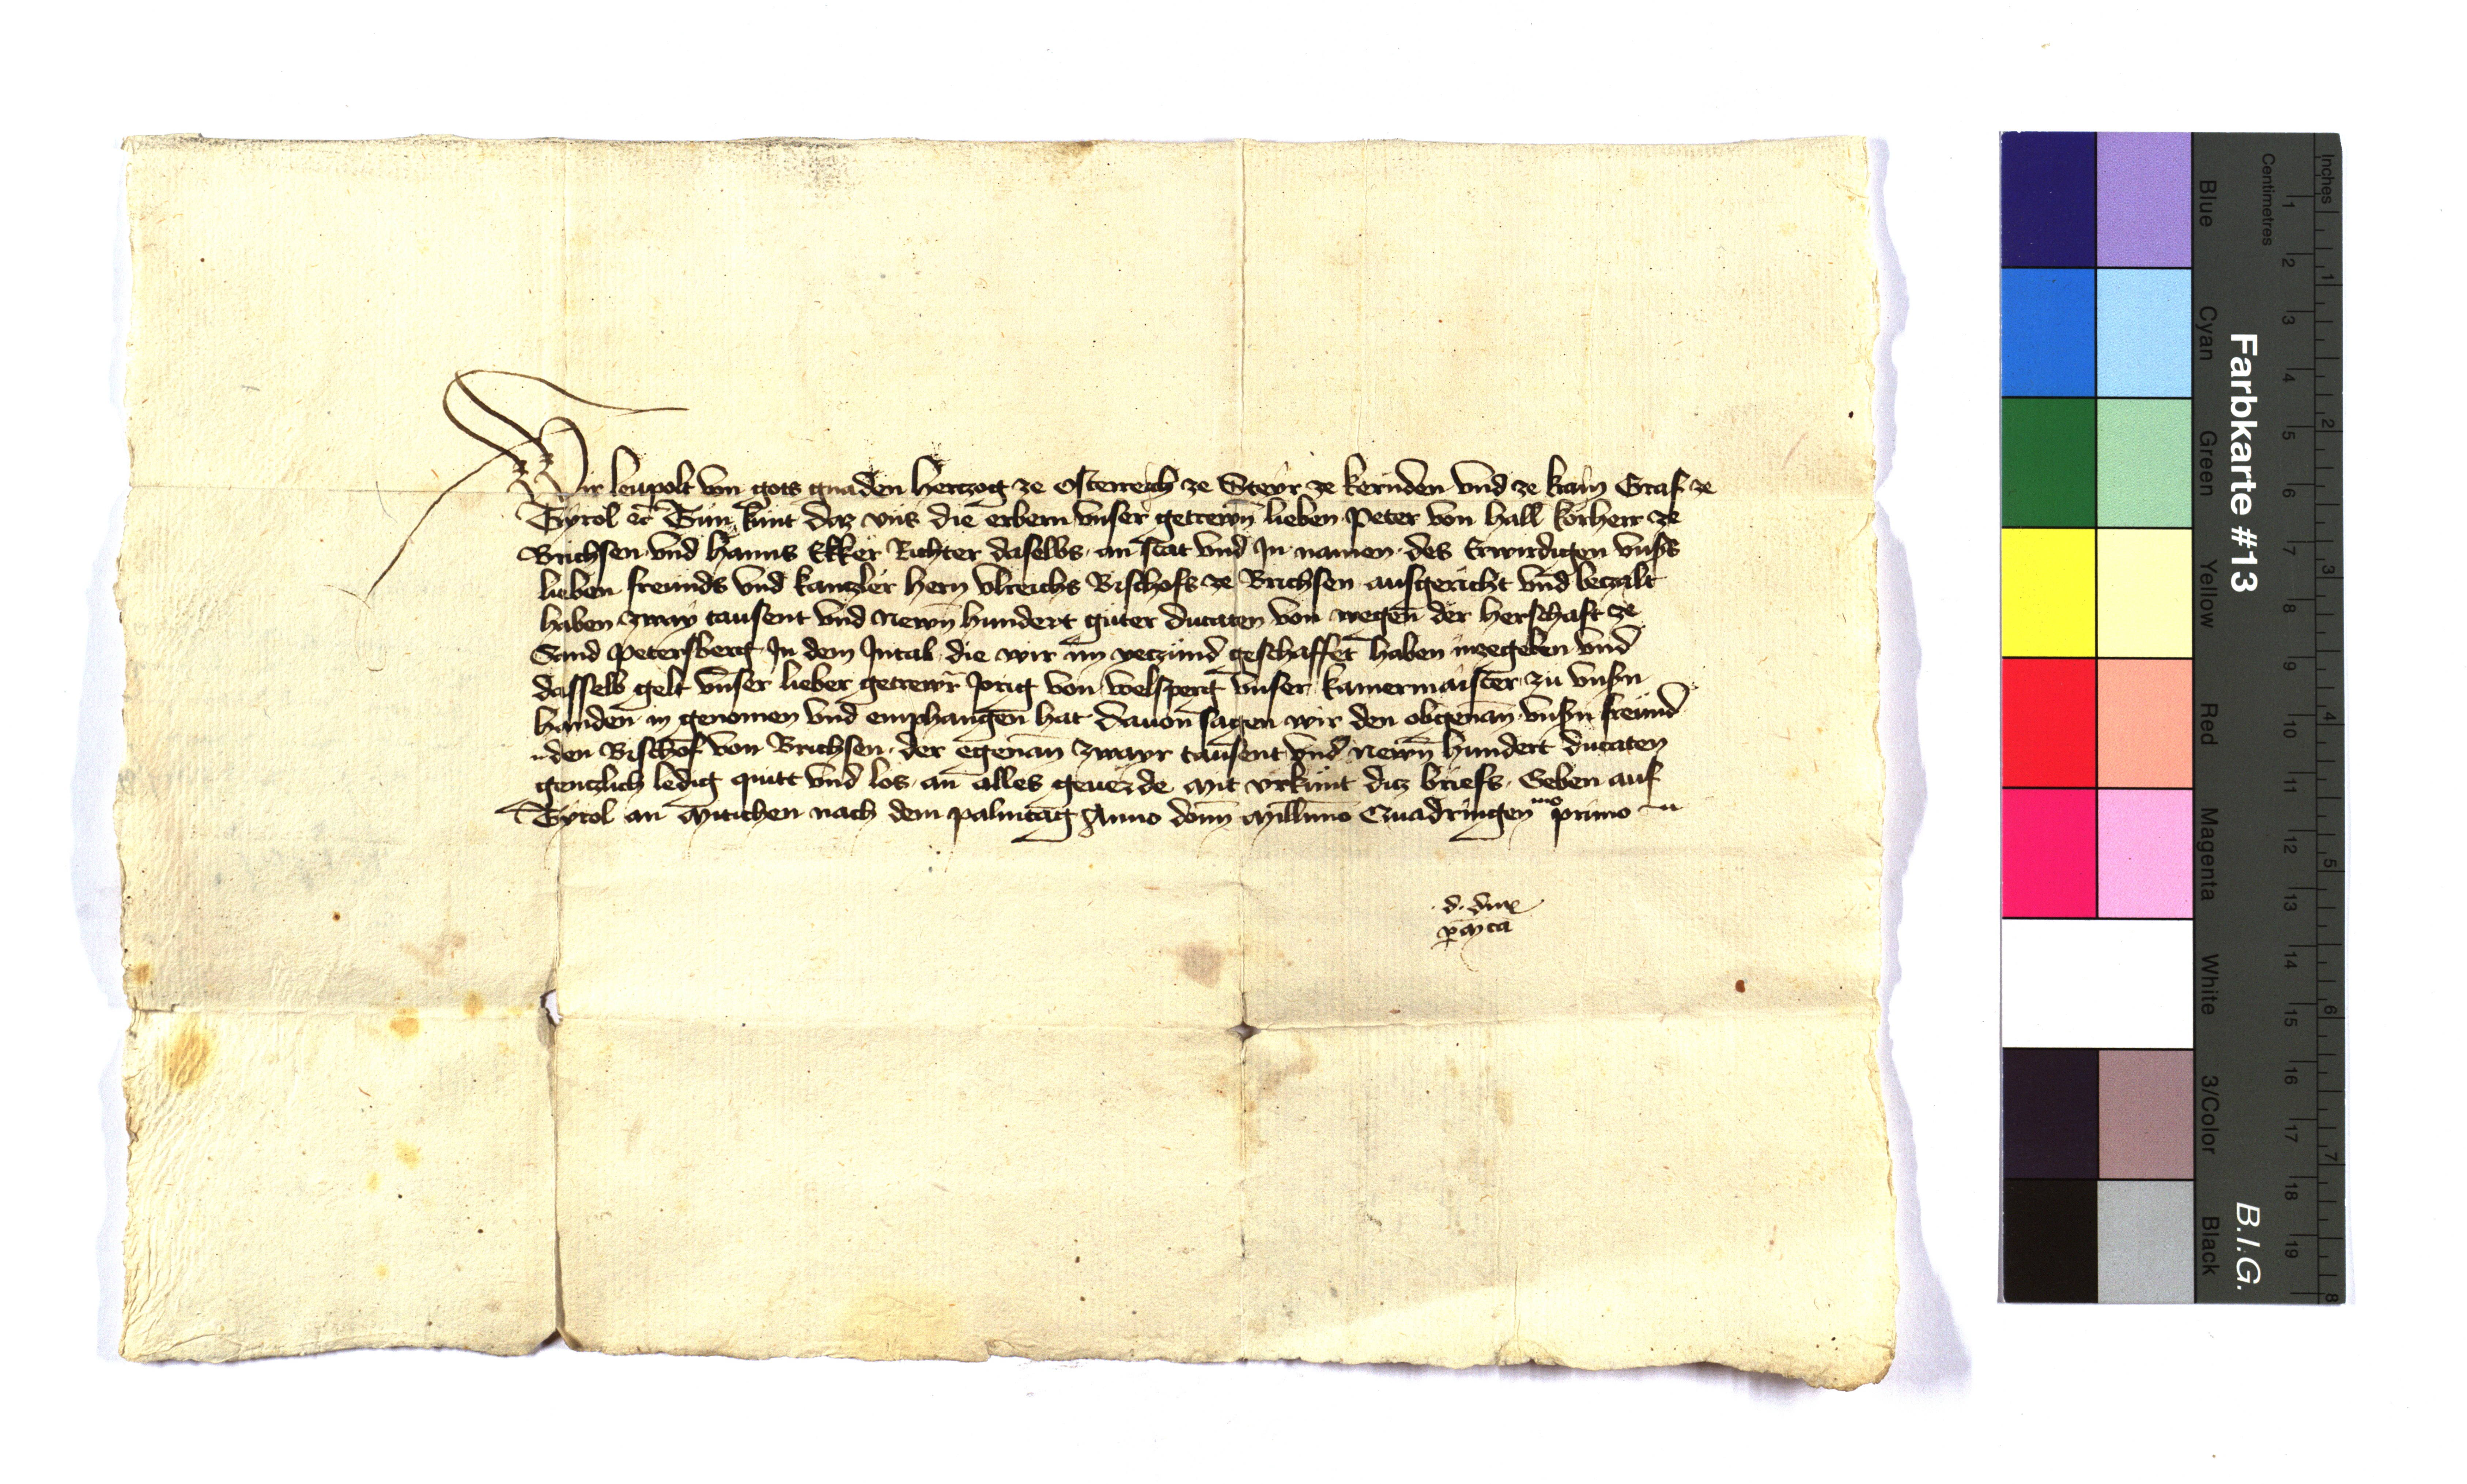 Wir leupolt von gots gnaden hertzog ze Osterreich ze Steyr ze kernden vnd ze krain Graf ze
Tyrol etc Tun kunt daz vns die erbern vnser getrewn lieben Peter von hall korherr ze
Brichsen vnd Hanns Ekker Richter daselbs an stat vnd In namen des Erwirdigen vnsers
lieben freunds vnd kanzler hern vlreichs Bischofs ze Brichsen ausgericht vnd beczalt
haben zway tausent vnd Newn hundert guter ducaten von wegen der herschaft ze
Sand Petersberg In dem Intal die wir im yeczund geschaffet haben inzegeben vnd
dasselb gelt vnser lieber getrewr Jorig von welsperg vnser kamermaister zu vnsern
handen in genomen vnd emphangen hat dauon sagen wir den obgenan vnsern freund
den Bischof von Brichsen der egenan zwayr tausent vnd Newn hundert ducaten
gentzlich ledig quitt vnd los an alles geuerde mit vrkunt ditz briefs Geben auf
Tyrol an Mitichen nach dem palmtag Anno domini Millimo Quadringenmo primo
d. dux
p M ca
Farbkarte #13
B.I.G.
Inches
Centimetres
1 2 3 4 5 6 7 8 9 10 11 12 13 14 15 16 17 18 19
1 2 3 4 5 6 7 8
Blue
Cyan
Green
Yellow
Red
Magenta
White
3/Color
Black